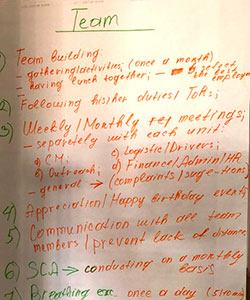 Team
1) Team building:
- gathering/activities; (once a month)
- having lunch together; - select the best employee
2) Following his/her duties/ToRs;
3) Weekly/Monthly meetings;
- separately with each unit:
a) CM; c) Logistic/Drivers;
b) Outreach; d) Finance/Admin/HR
- general → (complaints/sugestions)
4) Appreciation/Happy Birthday event
5) Communication with all team
members/prevent lack of distance
6) SCA → conducting on a monthly
basis
7) Breathing exc. once a day (5-10